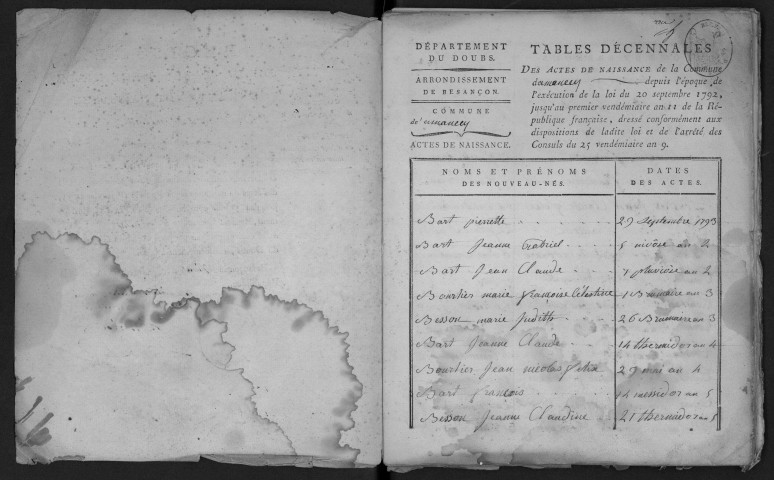 DÉPARTEMENT
DU DOUBS.
ARRONDISSEMENT
DE BESANÇON.
COMMUNE
d'amancey
ACTES DE NAISSANCE.
TABLES DÉCENNALES
DES ACTES DE NAISSANCE de la Commune
damancey depuis l'époque de
l'exécution de la loi du 20 septembre 1792,
jusqu'au premier vendémiaire an 11 de la Ré-
publique française, dressé conformément aux
dispositions de ladite loi et de l'arrêté des
Consuls du 25 vendémiaire an 9.
NOMS ET PRÉNOMS
DES NOUVEAU-NÉS.
DATES
DES ACTES.
Bart pierrette 29 Septembre 1793
Bart Jeanne Gabriel 5 nivôse an 2
Bart Jean Claude 7 pluviôse an 2
Bourlier marie françoise Célestine 1 Brumaire an 3
Besson marie Judith 26 Brumaire an 3
Bart Jeanne Claude 14 thermidor an 4
Bourlier Jean nicolas felix 29 mai an 4
Bart francois 14 messidor an 5
Besson Jeanne Claudine 21 thermidor an 5